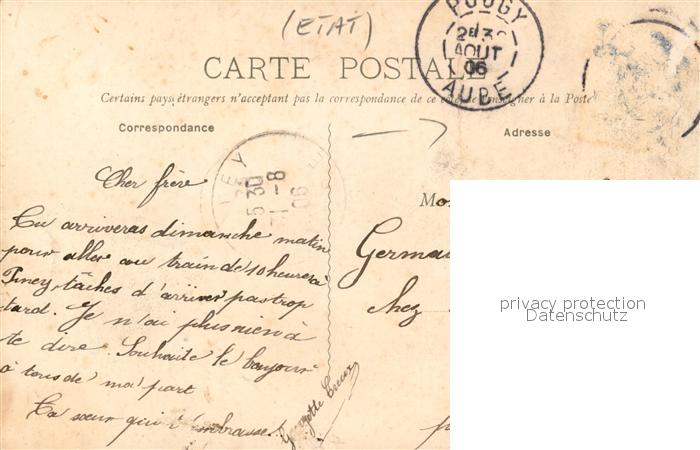 (ETAT)
POUGY
2E 3
AOUT
06
AUBE
CARTE POSTALE
Certains pays étrangers n'acceptant pas la correspondance de ce à la Poste
Correspondance
Adresse
EY
5 30
31 - 8
06
Cher frère
Tu arriveras dimanche matin
pour aller au train de 10 heures à
Piney, tâches d'arriver pas trop
tard. Je n'ai plus rien à
te dire. Souhaite le bonjour
à tous de ma part
Ta sœur qui t'embrasse.
Georgette
Germai
chez
privacy protection
Datenschutz